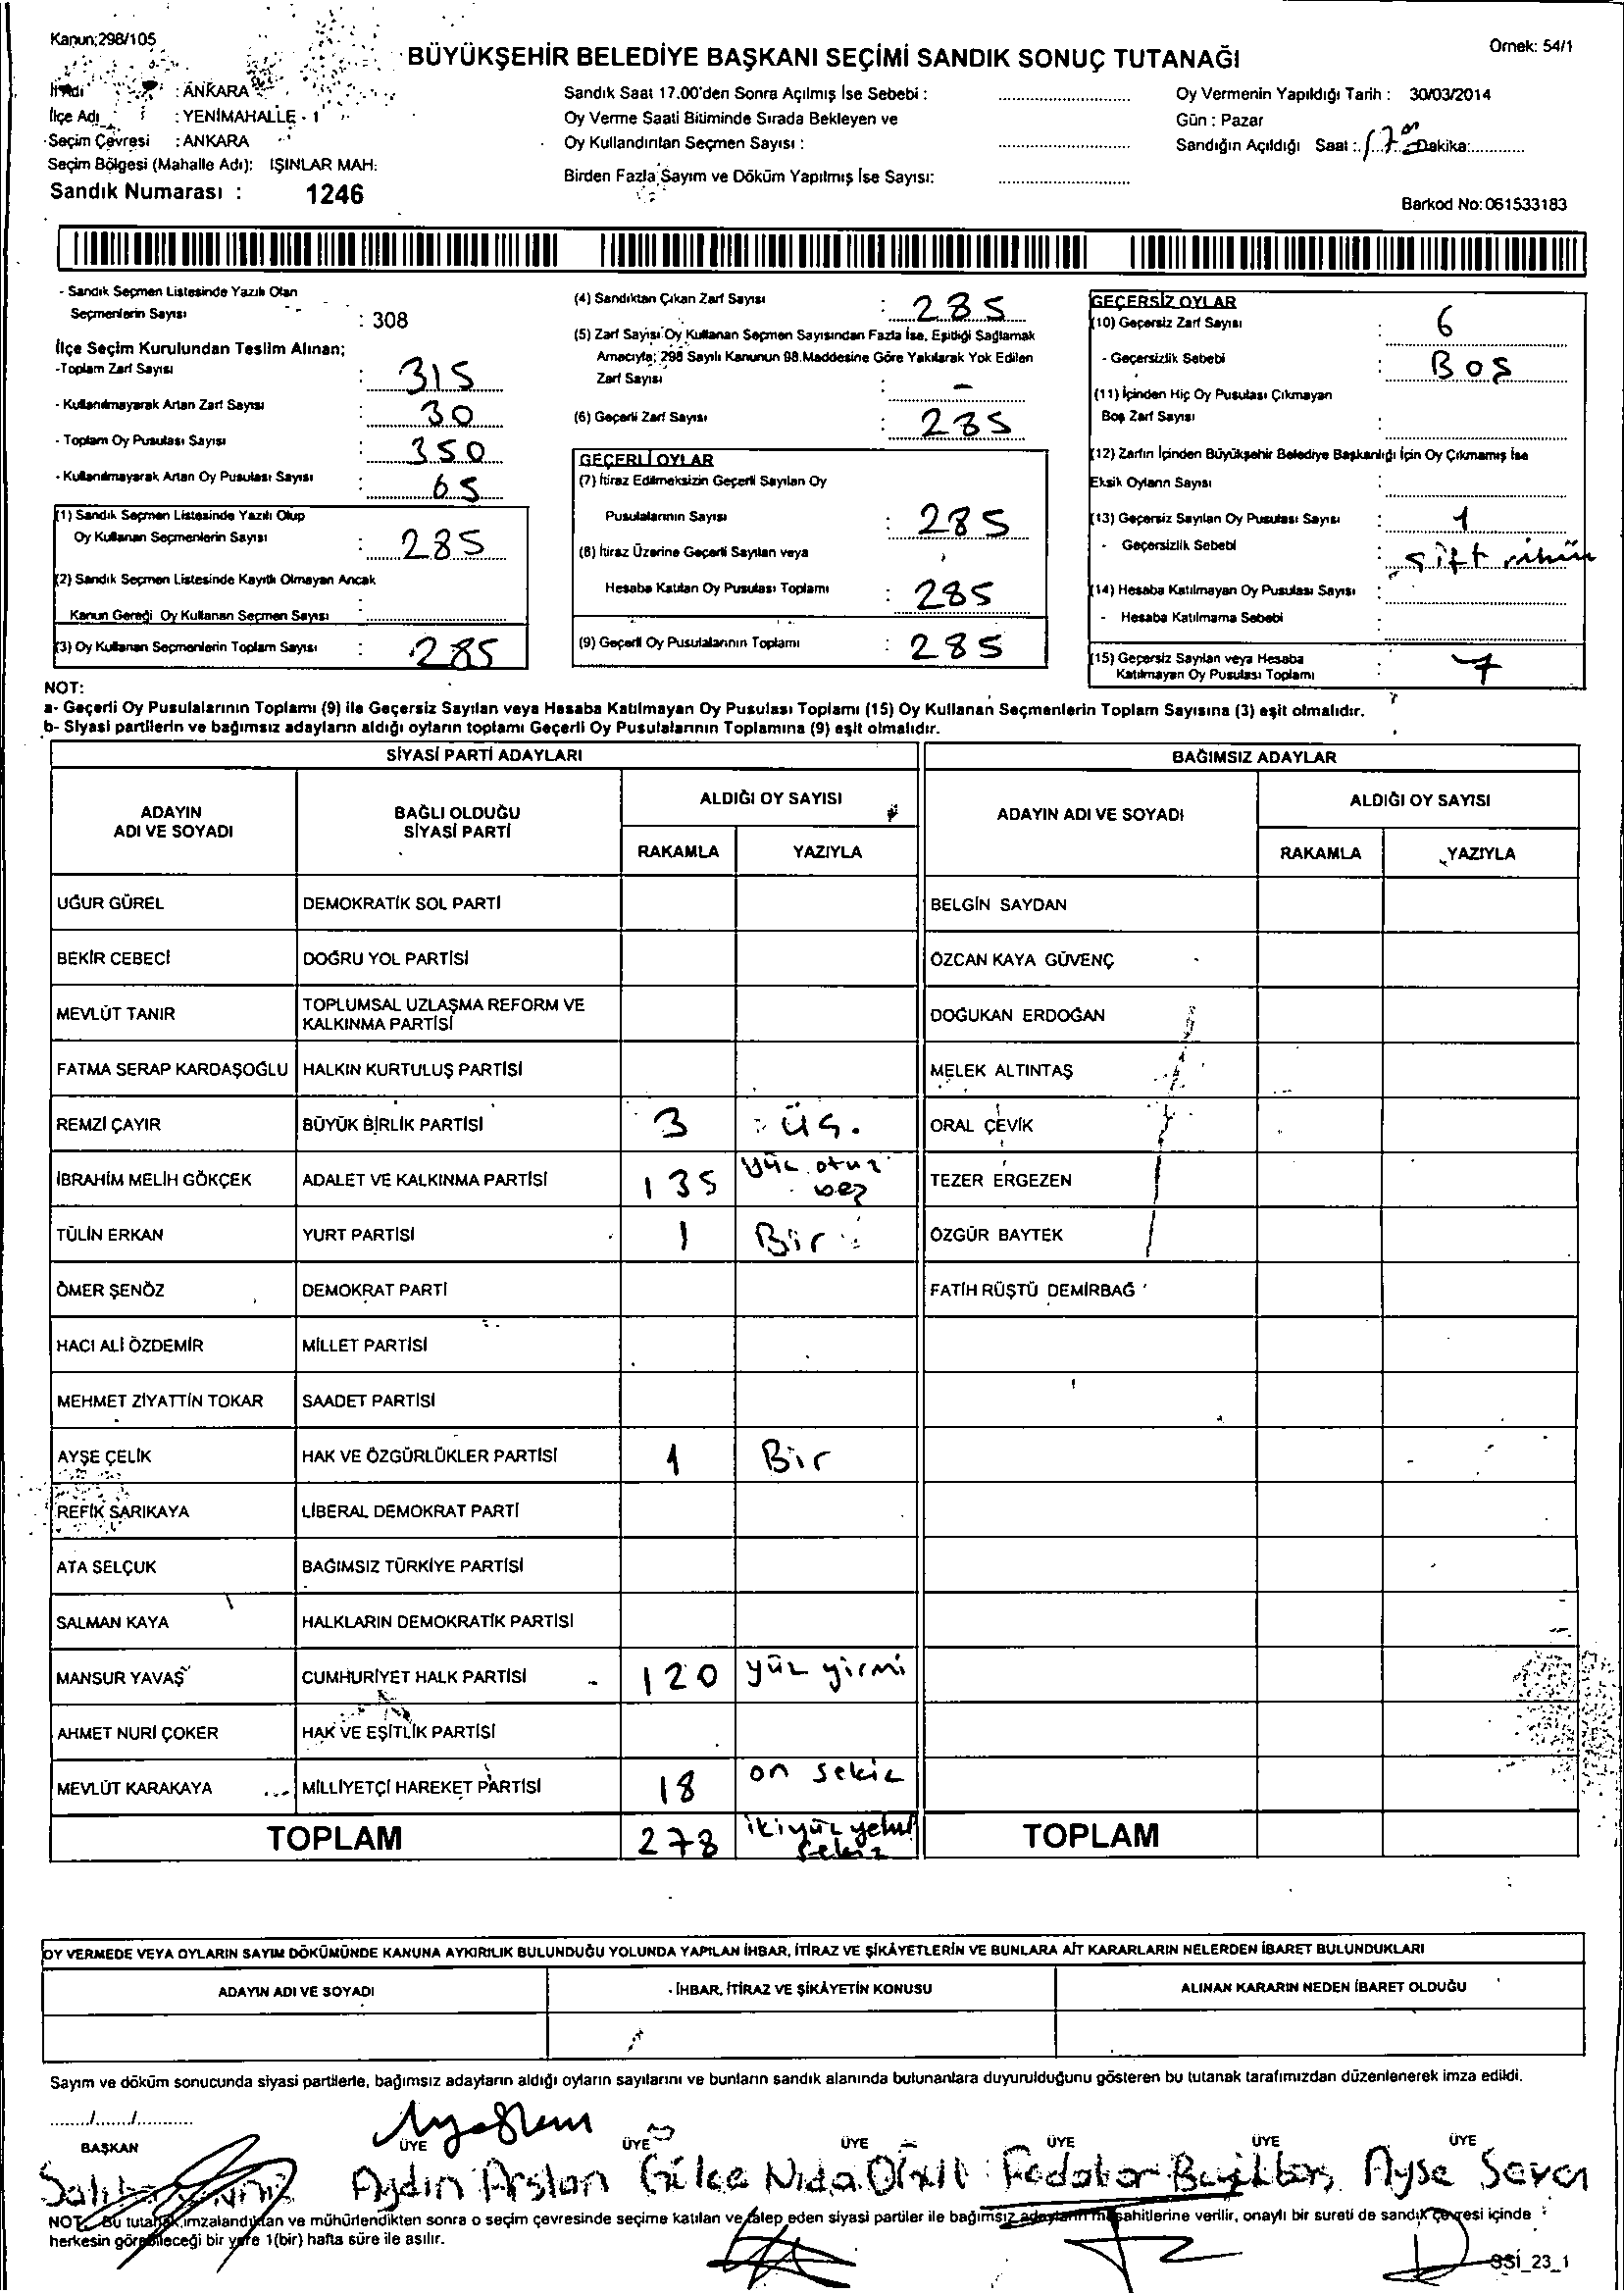 Kanun;298/105
Örnek: 54/1
BÜYÜKŞEHİR BELEDİYE BAŞKANI SEÇİMİ SANDIK SONUÇ TUTANAĞI
İl Adı : ANKARA
İlçe Adı : YENİMAHALLE - 1
Seçim Çevresi : ANKARA
Seçim Bölgesi (Mahalle Adı): IŞINLAR MAH.
Sandık Numarası : 1246
Sandık Saat 17.00'den Sonra Açılmış İse Sebebi :
Oy Verme Saati Bitiminde Sırada Bekleyen ve
Oy Kullandırılan Seçmen Sayısı :
Birden Fazla Sayım ve Döküm Yapılmış İse Sayısı:
Oy Vermenin Yapıldığı Tarih : 30/03/2014
Gün : Pazar
Sandığın Açıldığı Saat : 17 00 Dakika:
Barkod No: 061533183
- Sandık Seçmen Listesinde Yazılı Olan
Seçmenlerin Sayısı : 308
İlçe Seçim Kurulundan Teslim Alınan;
-Toplam Zarf Sayısı : 315
- Kullanılmayarak Artan Zarf Sayısı : 30
- Toplam Oy Pusulası Sayısı : 350
- Kullanılmayarak Artan Oy Pusulası Sayısı : 65
(1) Sandık Seçmen Listesinde Yazılı Olup
Oy Kullanan Seçmenlerin Sayısı : 285
(2) Sandık Seçmen Listesinde Kayıtlı Olmayan Ancak
Kanun Gereği Oy Kullanan Seçmen Sayısı :
(3) Oy Kullanan Seçmenlerin Toplam Sayısı : 285
(4) Sandıktan Çıkan Zarf Sayısı : 285
(5) Zarf Sayısı Oy Kullanan Seçmen Sayısından Fazla İse, Eşitliği Sağlamak
Amacıyla; 298 Sayılı Kanunun 98.Maddesine Göre Yakılarak Yok Edilen
Zarf Sayısı : -
(6) Geçerli Zarf Sayısı : 285
GEÇERLİ OYLAR
(7) İtiraz Edilmeksizin Geçerli Sayılan Oy
Pusulalarının Sayısı : 285
(8) İtiraz Üzerine Geçerli Sayılan veya
Hesaba Katılan Oy Pusulası Toplamı : 285
(9) Geçerli Oy Pusulalarının Toplamı : 285
GEÇERSİZ OYLAR
(10) Geçersiz Zarf Sayısı : 6
- Geçersizlik Sebebi : BOŞ
(11) İçinden Hiç Oy Pusulası Çıkmayan
Boş Zarf Sayısı :
(12) Zarfın İçinden Büyükşehir Belediye Başkanlığı İçin Oy Çıkmamış İse
Eksik Oyların Sayısı :
(13) Geçersiz Sayılan Oy Pusulası Sayısı : 1
- Geçersizlik Sebebi : çift
(14) Hesaba Katılmayan Oy Pusulası Sayısı :
- Hesaba Katılmama Sebebi :
(15) Geçersiz Sayılan veya Hesaba
Katılmayan Oy Pusulası Toplamı : 7
NOT:
a- Geçerli Oy Pusulalarının Toplamı (9) ile Geçersiz Sayılan veya Hesaba Katılmayan Oy Pusulası Toplamı (15) Oy Kullanan Seçmenlerin Toplam Sayısına (3) eşit olmalıdır.
b- Siyasi partilerin ve bağımsız adayların aldığı oyların toplamı Geçerli Oy Pusulalarının Toplamına (9) eşit olmalıdır.
SİYASİ PARTİ ADAYLARI
BAĞIMSIZ ADAYLAR
ADAYIN ADI VE SOYADI
BAĞLI OLDUĞU SİYASİ PARTİ
ALDIĞI OY SAYISI
RAKAMLA YAZIYLA
ADAYIN ADI VE SOYADI
ALDIĞI OY SAYISI
RAKAMLA YAZIYLA
UĞUR GÜREL DEMOKRATİK SOL PARTİ BELGİN SAYDAN
BEKİR CEBECİ DOĞRU YOL PARTİSİ ÖZCAN KAYA GÜVENÇ
MEVLÜT TANIR TOPLUMSAL UZLAŞMA REFORM VE KALKINMA PARTİSİ DOĞUKAN ERDOĞAN
FATMA SERAP KARDAŞOĞLU HALKIN KURTULUŞ PARTİSİ MELEK ALTINTAŞ
REMZİ ÇAYIR BÜYÜK BİRLİK PARTİSİ 3 üç. ORAL ÇEVİK
İBRAHİM MELİH GÖKÇEK ADALET VE KALKINMA PARTİSİ 135 yüz otuz beş TEZER ERGEZEN
TÜLİN ERKAN YURT PARTİSİ 1 Bir ÖZGÜR BAYTEK
ÖMER ŞENÖZ DEMOKRAT PARTİ FATİH RÜŞTÜ DEMİRBAĞ
HACI ALİ ÖZDEMİR MİLLET PARTİSİ
MEHMET ZİYATTİN TOKAR SAADET PARTİSİ
AYŞE ÇELİK HAK VE ÖZGÜRLÜKLER PARTİSİ 1 Bir
REFİK SARIKAYA LİBERAL DEMOKRAT PARTİ
ATA SELÇUK BAĞIMSIZ TÜRKİYE PARTİSİ
SALMAN KAYA HALKLARIN DEMOKRATİK PARTİSİ
MANSUR YAVAŞ CUMHURİYET HALK PARTİSİ 120 yüz yirmi
AHMET NURİ ÇOKER HAK VE EŞİTLİK PARTİSİ
MEVLÜT KARAKAYA MİLLİYETÇİ HAREKET PARTİSİ 18 on sekiz
TOPLAM 278 ikiyüz yetmiş sekiz TOPLAM
OY VERMEDE VEYA OYLARIN SAYIM DÖKÜMÜNDE KANUNA AYKIRILIK BULUNDUĞU YOLUNDA YAPILAN İHBAR, İTİRAZ VE ŞİKÂYETLERİN VE BUNLARA AİT KARARLARIN NELERDEN İBARET BULUNDUKLARI
ADAYIN ADI VE SOYADI İHBAR, İTİRAZ VE ŞİKÂYETİN KONUSU ALINAN KARARIN NEDEN İBARET OLDUĞU
Sayım ve döküm sonucunda siyasi partilerle, bağımsız adayların aldığı oyların sayılarını ve bunların sandık alanında bulunanlara duyurulduğunu gösteren bu tutanak tarafımızdan düzenlenerek imza edildi.
......./......./...........
BAŞKAN ÜYE ÜYE ÜYE ÜYE ÜYE ÜYE
Aydın Arslan Nida Ayşe
NOT: Bu tutanak imzalandıktan ve mühürlendikten sonra o seçim çevresinde seçime katılan ve talep eden siyasi partiler ile bağımsız adayların müşahitlerine verilir, onaylı bir sureti de sandık çevresi içinde
herkesin görebileceği bir yere 1(bir) hafta süre ile asılır.
SSİ_23_1